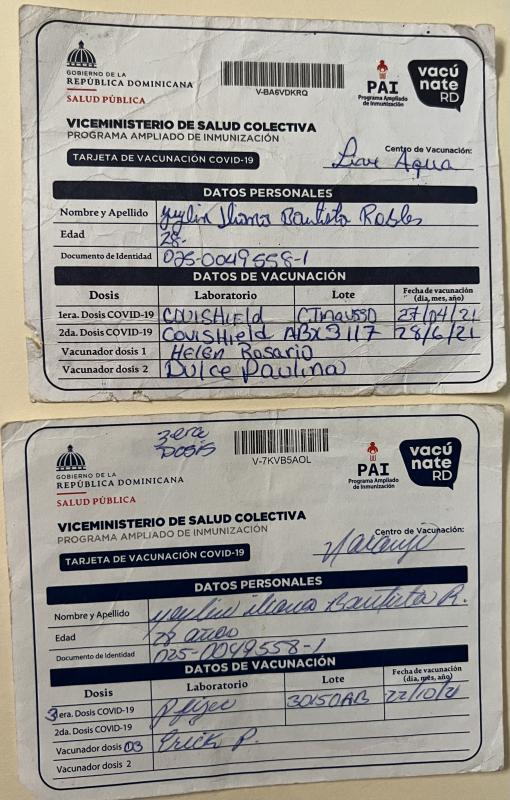 GOBIERNO DE LA
REPÚBLICA DOMINICANA
SALUD PÚBLICA
V-BA6VDKRQ
PAI
Programa Ampliado
de Inmunización
vacú
nate
RD
VICEMINISTERIO DE SALUD COLECTIVA
PROGRAMA AMPLIADO DE INMUNIZACIÓN
Centro de Vacunación:
TARJETA DE VACUNACIÓN COVID-19
Agua
DATOS PERSONALES
Nombre y Apellido Yeylin Iliana Bautista Robles
Edad 28-
Documento de Identidad 025-0049558-1
DATOS DE VACUNACIÓN
Dosis Laboratorio Lote Fecha de vacunación (día, mes, año)
1era. Dosis COVID-19 COVISHIELD 27/04/21
2da. Dosis COVID-19 COVISHIELD ABX3117 28/6/21
Vacunador dosis 1 Helen Rosario
Vacunador dosis 2 Dulce Paulino
3era
DOSIS
GOBIERNO DE LA
REPÚBLICA DOMINICANA
SALUD PÚBLICA
V-7KVB5AOL
PAI
Programa Ampliado
de Inmunización
vacú
nate
RD
VICEMINISTERIO DE SALUD COLECTIVA
PROGRAMA AMPLIADO DE INMUNIZACIÓN
Centro de Vacunación:
TARJETA DE VACUNACIÓN COVID-19
Naranjo
DATOS PERSONALES
Nombre y Apellido Yeylin Iliana Bautista R.
Edad 28 años
Documento de Identidad 025-0049558-1
DATOS DE VACUNACIÓN
Dosis Laboratorio Lote Fecha de vacunación (día, mes, año)
3era. Dosis COVID-19 Pfizer 30150AB 22/10/21
2da. Dosis COVID-19
Vacunador dosis 03 Erick P.
Vacunador dosis 2